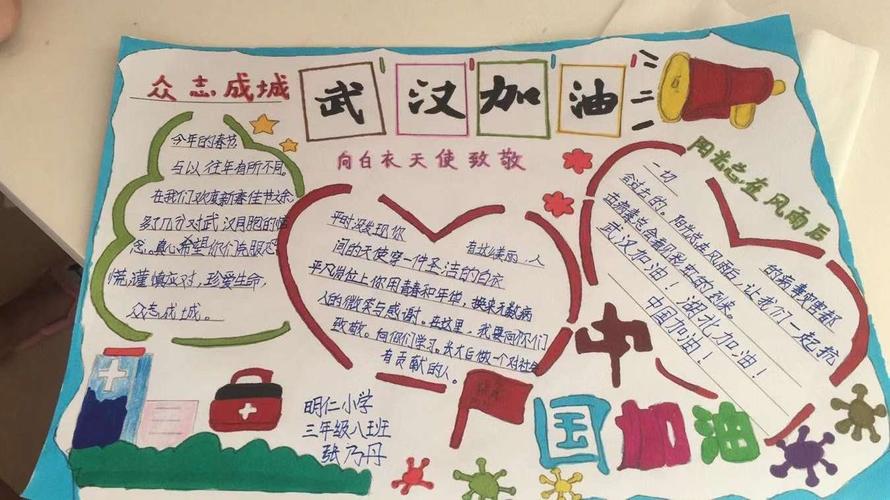 众志成城
武汉加油
向白衣天使致敬
阳光总在风雨后
今年的春节
与以往年有所不同。
在我们欢度新春佳节之余
多了几分对武汉同胞的惦
念。真心希望你们克服恐
慌谨慎应对,珍爱生命,
众志成城。
平时没发现你
有这么美丽,人
间的天使穿一件圣洁的白衣
平凡岗位上你用青春和年华,换来无数病
人的微笑与感谢。在这里,我要向你们
致敬。向你们学习。长大后做一个对社会
有贡献的人。
一切
的病毒灾害都
会过去的。阳光总在风雨后,让我们一起抗
击病毒总会看见彩虹的到来。
武汉加油!湖北加油!
中国加油!
明仁小学
三年级八班
张乃丹
国
油